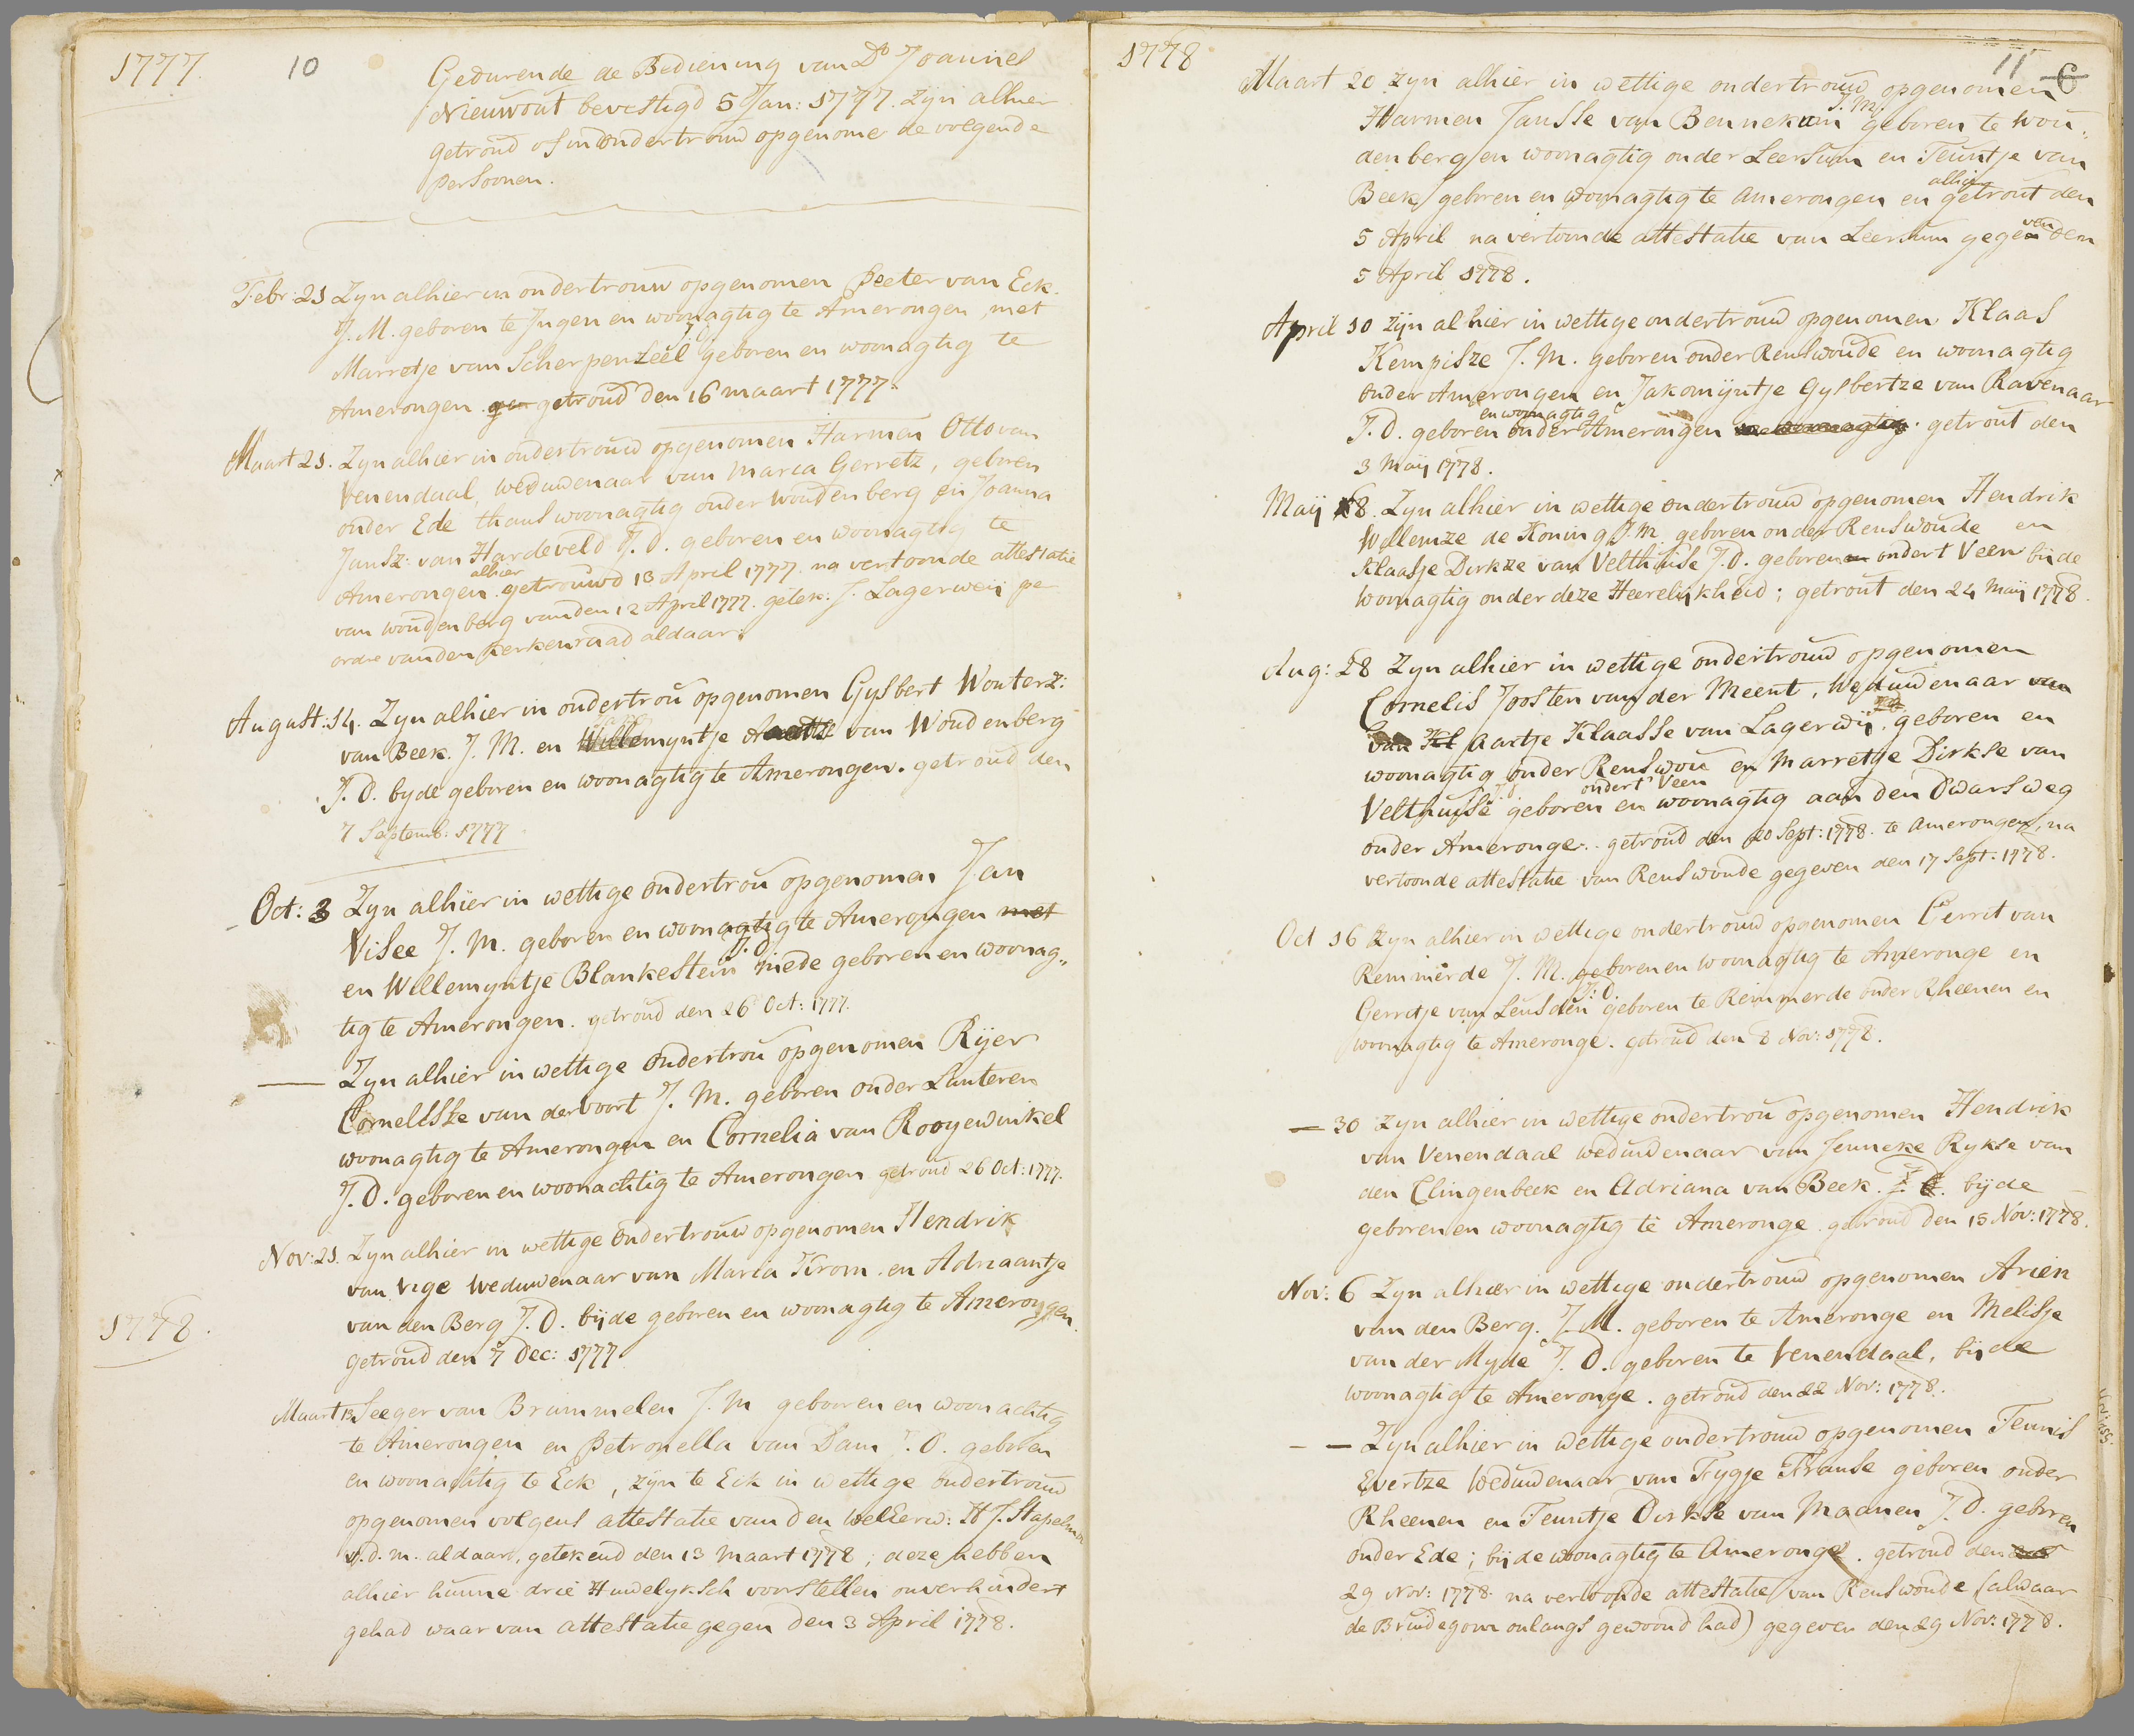 1777.
10
Gedurende de Bediening van Ds Joannes
Nieuwout bevestigd 5 Jan: 1777. zijn alhier
getroud of in ondertroud opgenome de volgende
persoonen.
Febr: 21 Zyn alhier in ondertrouw opgenomen Peeter van Eck.
J. M. geboren te Ingen en woonagtig te Amerongen, met
J. D.
Marretje van Scherpenzeel geboren en woonagtig te
Amerongen getroud den 16 maart 1777.
Maart 21. Zyn alhier in ondertroud opgenomen Harmen Otto van
Venendaal, weduwenaar van Maria Gerretz, geboren
onder Ede thans woonagtig onder Woudenberg en Joanna
Jansz: van Hardeveld J. D. geboren en woonagtig te
alhier
Amerongen. getrouwd 13 April 1777. na vertoonde attestatie
van Woudenberg van den 12 April 1777. getek: J. Lagerweij pe
ordre van den kerkenraad aldaar.
August: 14. Zyn alhier in ondertrou opgenomen Gysbert Wouterz:
van Beek. J. M. en Willemyntje van Woudenberg
J. D. byde geboren en woonagtig te Amerongen. getroud den
7 Septemb: 1777
Oct: 3 Zyn alhier in wettige ondertrou opgenomen Jan
Visee J. M. geboren en woonagtig te Amerongen met
J. D.
en Willemyntje Blankestein mede geboren en woonag„
tig te Amerongen. getroud den 26 Oct: 1777.
— Zyn alhier in wettige ondertrou opgenomen Rijer
Cornelisse van der voort J. M. geboren onder Lunteren
woonagtig te Amerongen en Cornelia van Rooyewinkel
J. D. geboren en woonachtig te Amerongen getroud 26 Oct: 1777.
Nov: 21. Zyn alhier in wettige ondertrouw opgenomen Hendrik
van Vige Weduwenaar van Maria Krom. en Adriaantje
van den Berg J. D. bijde geboren en woonagtig te Amerongen.
getroud den 7 Dec: 1777
1778.
Maart 13 Seeger van Brummelen J. M geboren en woonachtig
te Amerongen en Petronella van Dam J. D. geboren
en woonachtig te Eck, zijn te Eck in wettige ondertrouw
opgenomen volgens attestatie van den WelEerw: H J. Stapelm
v. d. m. aldaar, getekend den 13 Maart 1778; deze hebben
alhier hunne drie Huwelyksch voorstellen onverhindert
gehad waar van attestatie gegen den 3 April 1778.
1778
11 6
Maart 20 zyn alhier in wettige ondertroud opgenomen
J. M.
Harmen Jansse van Bennekum geboren te Wou„
denberg en woonagtig onder Leersum en Teuntje van
alhier
Beek geboren en woonagtig te Amerongen en getrout den
5 April na vertoonde attestatie van Leersum gegeven den
5 April 1778.
April 10 zijn alhier in wettige ondertroud opgenomen Klaas
Kempisze J. M. geboren onder Renswoude en woonagtig
onder Amerongen en Jakomijntje Gysbertze van Ravenaar
en woonagtig
J. D. geboren onder Amerongen en woonagtig. getrout den
3 Maij 1778.
Maij 8. Zyn alhier in wettige ondertroud opgenomen Hendrik
Willemze de Koning J. M. geboren onder Renswoude en
Klaasje Dirkze van Velthuise J. D. geboren en ondert Veen bijde
woonagtig onder deze Heerelijkheid; getrout den 24 Maij 1778.
Aug: 28 Zyn alhier in wettige ondertroud opgenomen
Cornelis Joosten van der Meent, Weduwenaar van
van Kl Aartje Klaasse van Lagerwij, geboren en
woonagtig onder Renswou en Marretje Dirkse van
J. d. ondert Veen
Velthuise geboren en woonagtig aan den Dwarsweg
onder Ameronge. getroud den 20 Sept: 1778. te Amerongen, na
vertoonde attestatie van Renswoude gegeven den 17 Sept: 1778.
Oct 16 Zyn alhier in wettige ondertroud opgenomen Gerrit van
Remmerde J. M. geboren en woonagtig te Ameronge en
J: D.
Gerretje van Leusden geboren te Remmerde onder Rheenen en
woonagtig te Ameronge. getroud den 8 Nov: 1778.
— 30 zyn alhier in wettige ondertrou opgenomen Hendrik
van Venendaal weduwenaar van Jenneke Rykse van
den Clingenbeek en Adriana van Beek. J. D. bijde
geboren en woonagtig te Ameronge getroud den 15 Nov: 1778.
Nov: 6 Zyn alhier in wettige ondertroud opgenomen Arien
van den Berg. J. M. geboren te Ameronge en Melisje
van der Myde J. D. geboren te Venendaal, bijde
woonagtig te Ameronge. getroud den 22 Nov: 1778.
— — Zyn alhier in wettige ondertroud opgenomen Teunis
Evertze Weduwenaar van Fygje Franse geboren onder
Rheenen en Teuntje Dirkse van Maanen J. D. geboren
onder Ede; bijde woonagtig te Ameronge. getroud den
29 Nov: 1778 na vertoonde attestatie van Renswoude (alwaar
de Bruidegom onlangs gewoond had) gegeven den 29 Nov: 1778.